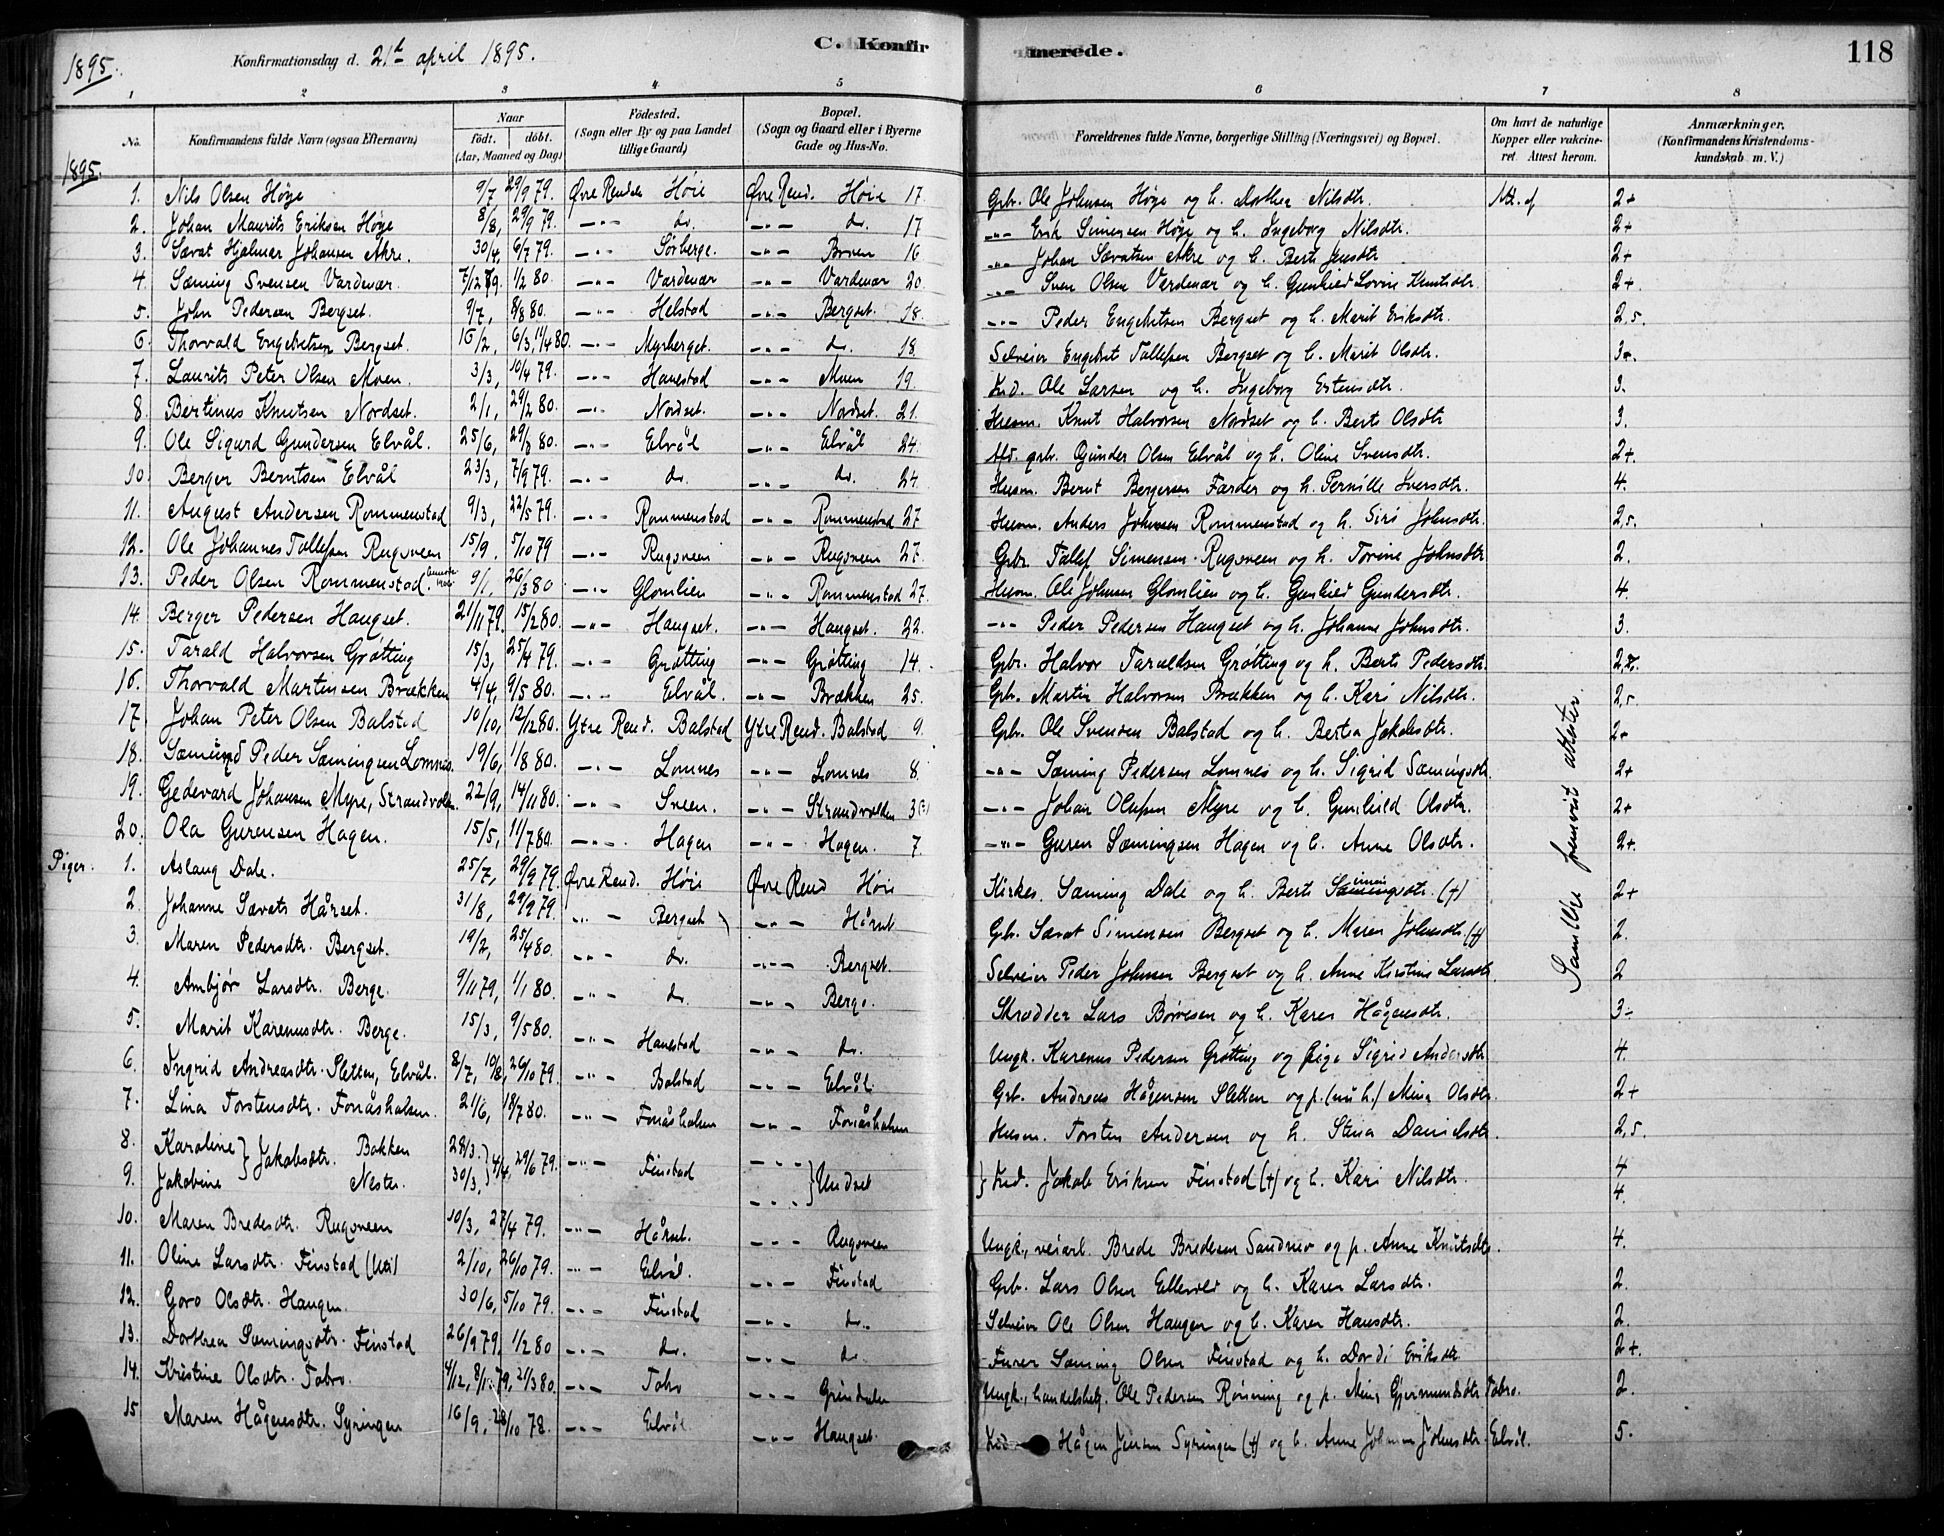 1895.
Konfirmationsdag d. 21de april 1895.
C. Konfirmerede.
118
1 2 3 4 5 6 7 8
No.
Konfirmandens fulde Navn (ogsaa Efternavn)
Naar
født. døbt.
(Aar, Maaned og Dag)
Fødested.
(Sogn eller By og paa Landet tillige Gaard)
Bopæl.
(Sogn og Gaard eller i Byerne Gade og Hus-No.
Forældrenes fulde Navne, borgerlige Stilling (Næringsvei) og Bopæl.
Om havt de naturlige Kopper eller vakcineret. Attest herom.
Anmærkninger,
(Konfirmandens Kristendomskundskab m. V.)
1895.
1. Nils Olsen Høye 9/7 29/9 79. Øvre Rendal Høie Øvre Rend. Høie 17. Gbr. Ole Johnsen Høye og h. Dorthea Nilsdtr. 2+
2. Johan Maurits Eriksen Høye 8/8, 29/9 79. -"- do. -"- do. 17 -"- Erik Simensen Høye og h. Ingeborg Nilsdtr. 2+
3. Sævat Hjalmar Johansen Akre. 30/4, 6/7 79. -"- Sørberge. -"- 16 -"- Johan Sævatsen Akre og h. Berte Jensdtr 2+
4. Sæming Svensen Vardenær. 7/12 79. 1/2 80. -"- Vardenær -"- Vardenær 20. -"- Sven Olsen Vardenær og h. Gunhild Lovise Knutsdtr. 2+.
5. John Pedersen Bergset. 9/7, 8/8 80. -"- Helstad -"- Bergset. 18. -"- Peder Engebretsen Bergset og h. Marit Eriksdtr. 2,5.
6. Thorvald Engebretsen Bergset. 15/2, 6/3, 11/4 80. -"- Myrberget. -"- do. 18. Selveier Engebret Tollefsen Bergset og h. Marit Olsdtr. 3+.
7. Laurits Peter Olsen Moen. 3/3, 10/4 79. -"- Hanestad -"- Moen 19. Ole Larsen og h. Ingeborg Estensdtr. 3.
8. Bertinus Knutsen Nordset. 2/1, 29/2 80. -"- Nordset. -"- Nordset. 21. Husm. Knut Halvorsen Nordset og h. Berte Olsdtr 3.
9. Ole Sigurd Gundersen Elvål. 25/6, 29/8 80. -"- Elvål -"- Elvål 24. gbr. Gunder Olsen Elvål og h. Oline Svensdtr. 2+.
10. Berger Berntsen Elvål 23/3, 7/9 79. -"- do. -"- do. 24. Husm. Bernt Bergersen Færder og h. Pernille Iversdtr. 4.
11. August Andersen Rommenstad 9/3, 22/5 79. -"- Rommenstad -"- Rommenstad 27. Husm. Anders Johnsen Rommenstad og h. Siri Johnsdtr. 2,5.
12. Ole Johannes Tollefsen Rugsveen 15/9. 5/10 79 -"- Rugsveen -"- Rugsveen 27. Gbr. Tollef Simensen Rugsveen og h. Torine Johnsdtr 2.
13. Peder Olsen Rommenstad. 9/1, 26/3 80 -"- Glomlien -"- Rommenstad 27. Husm. Ole Johnsen Glomlien og h. Gunhild Gundersdtr. 4.
14. Berger Pedersen Haugset. 21/11 79. 15/2 80. -"- Haugset. -"- Haugset. 22. -"- Peder Pedersen Haugset og h. Johanne Johnsdtr. 3.
15. Tarald Halvorsen Grøtting 15/3, 25/4 79. -"- Grøtting -"- Grøtting 14. Gbr. Halvor Taraldsen Grøtting og h. Berte Pedersdtr.
16. Thorvald Martinsen Brækken 4/4, 9/5 80. -"- Elvål. -"- Brækken 25. Gbr. Martin Halvorsen Brækken og h. Kari Nilsdtr. 2,5
17. Johan Peter Olsen Balstad 10/10, 12/12 80. Ytre Rend. Balstad Ytre Rend. Balstad 9. Gbr. Ole Svensen Balstad og h. Bertea Jakobsdtr. 2+
18. Sæmund Peder Sæmingsen Lomnes. 19/6, 1/8 80. -"- Lomnes -"- Lomnes 8. -"- Sæming Pedersen Lomnes og h. Sigrid Sæmingsdtr. 2+
19. Gedevard Johansen Myre, Strandvolden. 22/9, 14/11 80. -"- Sveen. -"- Strandvolden 3 -"- Johan Olufsen Myre og h. Gunhild Olsdtr. 2+
20. Ola Gurensen Hagen. 15/5, 11/7 80. -"- Hagen -"- Hagen. 7. -"- Guren Sæmingsen Hagen og h. Anne Olsdtr. 2+.
Samtlige fremvist attester.
Piger. 1. Aslaug Dale. 25/7, 29/9 79. Øvre Rend. Høie Øvre Rend Høie Kirkes. Sæming Dale og h. Berte Simensdtr. (+) 2+
2. Johanne Sævats Hårset. 31/8, 29/9 79. -"- Bergset -"- Hårset Gbr. Sævat Simensen Bergset og h. Maren Johnsdtr (+) 2.
3. Maren Pedersdtr. Bergset. 19/2, 25/4 80. -"- do. -"- Bergset. Selveier Peder Johnsen Bergset og h. Anne Kirstine Larsdtr. 2
4. Ambjør Larsdtr. Berge. 9/11 79, 1/1 80. -"- do. -"- Berge. Skrædder Lars Børresen og h. Karen Hågensdtr. 3÷
5. Marit Karenusdtr. Berge. 15/3, 9/5 80. -"- Hanestad -"- do. Ungk. Karenus Pedersen Grøtting og pige Sigrid Andersdtr 4.
6. Ingrid Andreasdtr. Sletten, Elvål. 8/7, 10/8, 26/10 79. -"- Balstad -"- Elvål Gbr. Andreas Hågensen Sletten og p. (nu h.) Mina Olsdtr. 2+
7. Lina Torstensdtr. Fonåshalsen. 21/6, 18/7 80. -"- Fonåshalsen -"- Fonåshalsen Husm. Torsten Andersen og h. Stina Danielsdtr. 2,5.
8. Karoline } Jakobsdtr. Bakken 28/3. } 4/4, 29/6 79. -"- Finstad -"- } Undset } Jakob Eriksen Finstad (+) og h. Kari Nilsdtr. 4
9. Jakobine Nesten. 30/3. -"- 4.
10. Maren Bredesdtr. Rugsveen 10/3, 27/4 79. -"- Hårset. -"- Rugsveen Ungk., veiarb. Brede Bredesen Sandnes og p. Anne Knutsdtr. 4.
11. Oline Larsdtr. Finstad 2/10, 26/10 79. -"- Elvål. -"- Finstad Gbr. Lars Olsen Ellevold og h. Karen Larsdtr. 2.
12. Goro Olsdtr. Haugen. 30/6, 5/10 79. -"- Finstad -"- do. Selveier Ole Olsen Haugen og h. Karen Hansdtr. 2.
13. Dorthea Sæmingsdtr. Finstad 26/9 79, 1/2 80 -"- do. -"- do. Furer Sæming Olsen Finstad og h. Dordi Eriksdtr 2+.
14. Kristine Olsdtr. Fabro. 4/12, 8/12 79, 21/3 80. -"- Fabro -"- Grindalen Ungk., handelsbetj. Ole Pedersen Rønning og p. Mina Gjermundsdtr Fabro. 2.
15 Maren Hågensdtr. Syringen 16/9, 28/10 78. -"- Elvål -"- Haugset. Hågen Jensen Syringen (+) og h. Anne Johnsdtr. Elvål. 5.